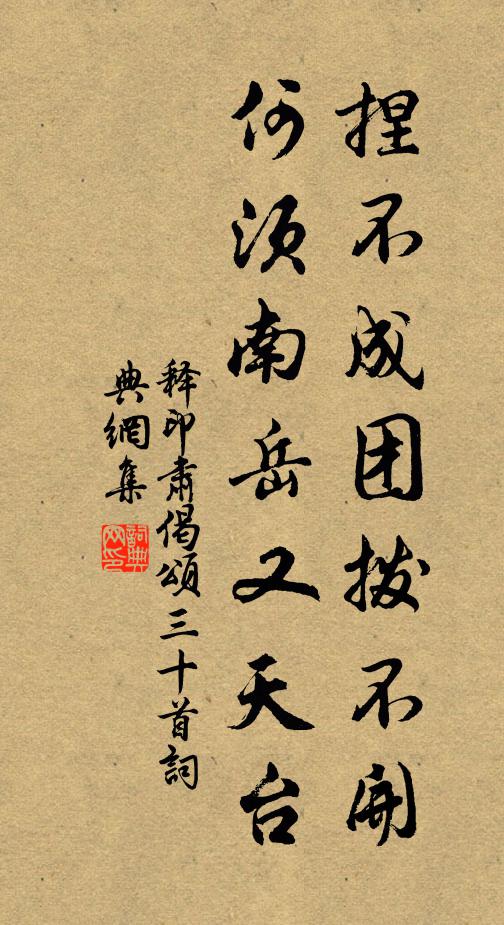 捏不成团拨不开
何须南岳又天台
释印肃偈颂三十首詞
典網集
詞典
网印